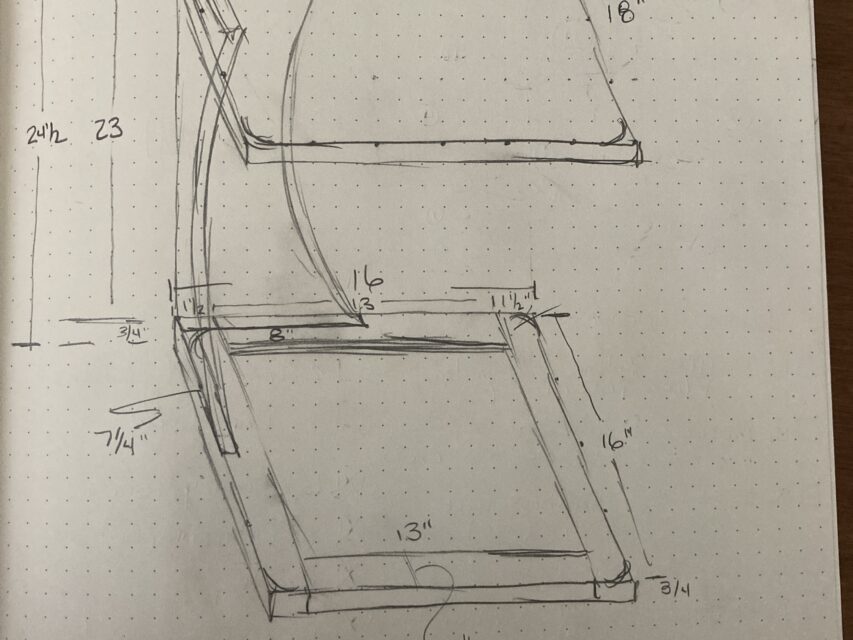 18"
24½ 23
16
1½ 13 1½"
3/4"
8"
7¼"
16"
13"
3/4